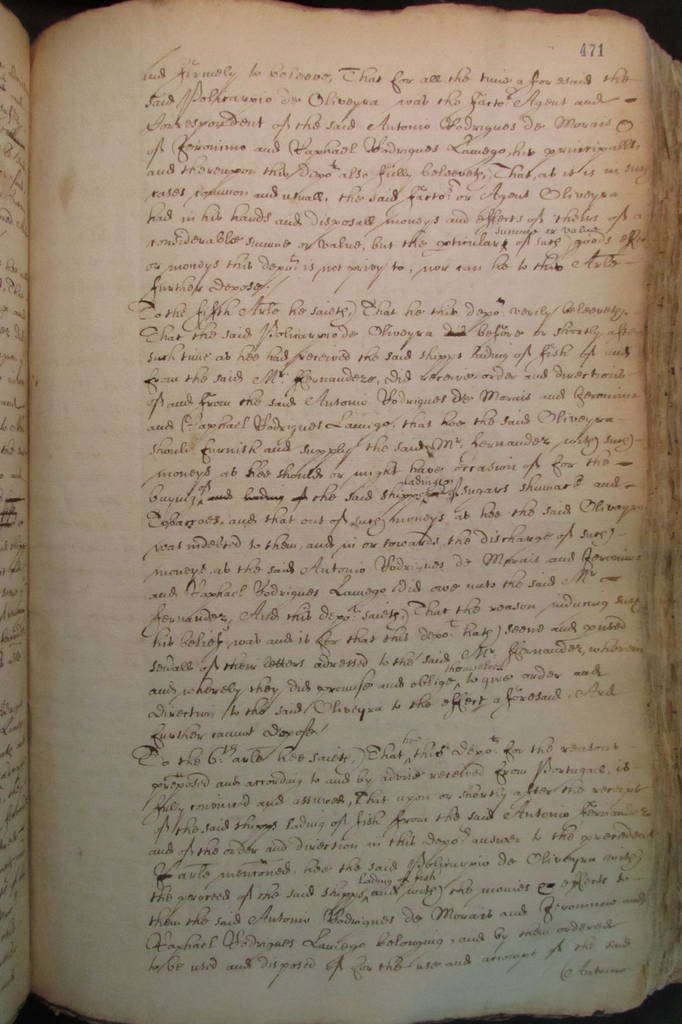 471
and firmely to beleeve, That for all the time aforesaid the
said Policarpio de Oliveyra was the factor Agent and
Correspondent of the said Antonio Rodrigues de Morais
of Geronimo and Raphael Rodrigues Lamego, his principalls,
and thereupon this depot also fully beleeveth, That, as it is in such
cases common and usuall, the said factor or Agent Oliveyra
had in his hands and disposall moneys and effects of theirs of a
summe or value
considerable summe or value, but the perticulars of such goods effects
or moneys this depot is not privy to, nor can he to this Arle
further depose./
To the fifth Arle he saieth, That he this depot verily beleeveth,
That the said Policarpio de Oliveyra before or shortly after
such time as hee had received the said shipps lading of fish of and
from the said Mr Fernandez, did receive order and directions
of and from the said Antonio Rodrigues de Morais and Geronimo
and Raphael Rodrigues Lamego, that hee the said Oliveyra
should furnish and supply the said Mr Fernandez with such
moneys as hee should or might have occasion of for the
lading of
buying of and lading of the said shipps sugars shumack and
Tobaccoes, and that out of such moneys as hee the said Oliveyra
was indebted to them, and in or towards the discharge of such
moneys, as the said Antonio Rodrigues de Morais and Geronimo
and Raphael Rodrigues Lamego did owe unto the said Mr
Fernandez, And this depot saieth, That the reason inducing such
his belief, was and is for that this depot hath seene and perused
severall of their letters adressed to the said Mr Fernandez, wherein
themselves
and whereby they did promise and oblige to give order and
direction to the said Oliveyra to the effect aforesaid, And
further cannot depose./
To the 6th arle hee saieth, That hee this Depot for the reasons
preposed and according to and by advice received from Portugal, is
fully convinced and assured, That upon or shortly after the receipt
of the said shipps lading of fish from the said Antonio Fernandez
and of the order and direction in this depots answer to the precedent
arle mentioned, hee the said Policarpio de Oliveyra with
lading of fish
the proceed of the said shipps and with the monies effects to
them the said Antonio Rodrigues de Morais and Geronimo and
Raphael Rodrigues Lamego belonging and by them ordered
to be used and disposed of for the use and accompt of the said
Antonio